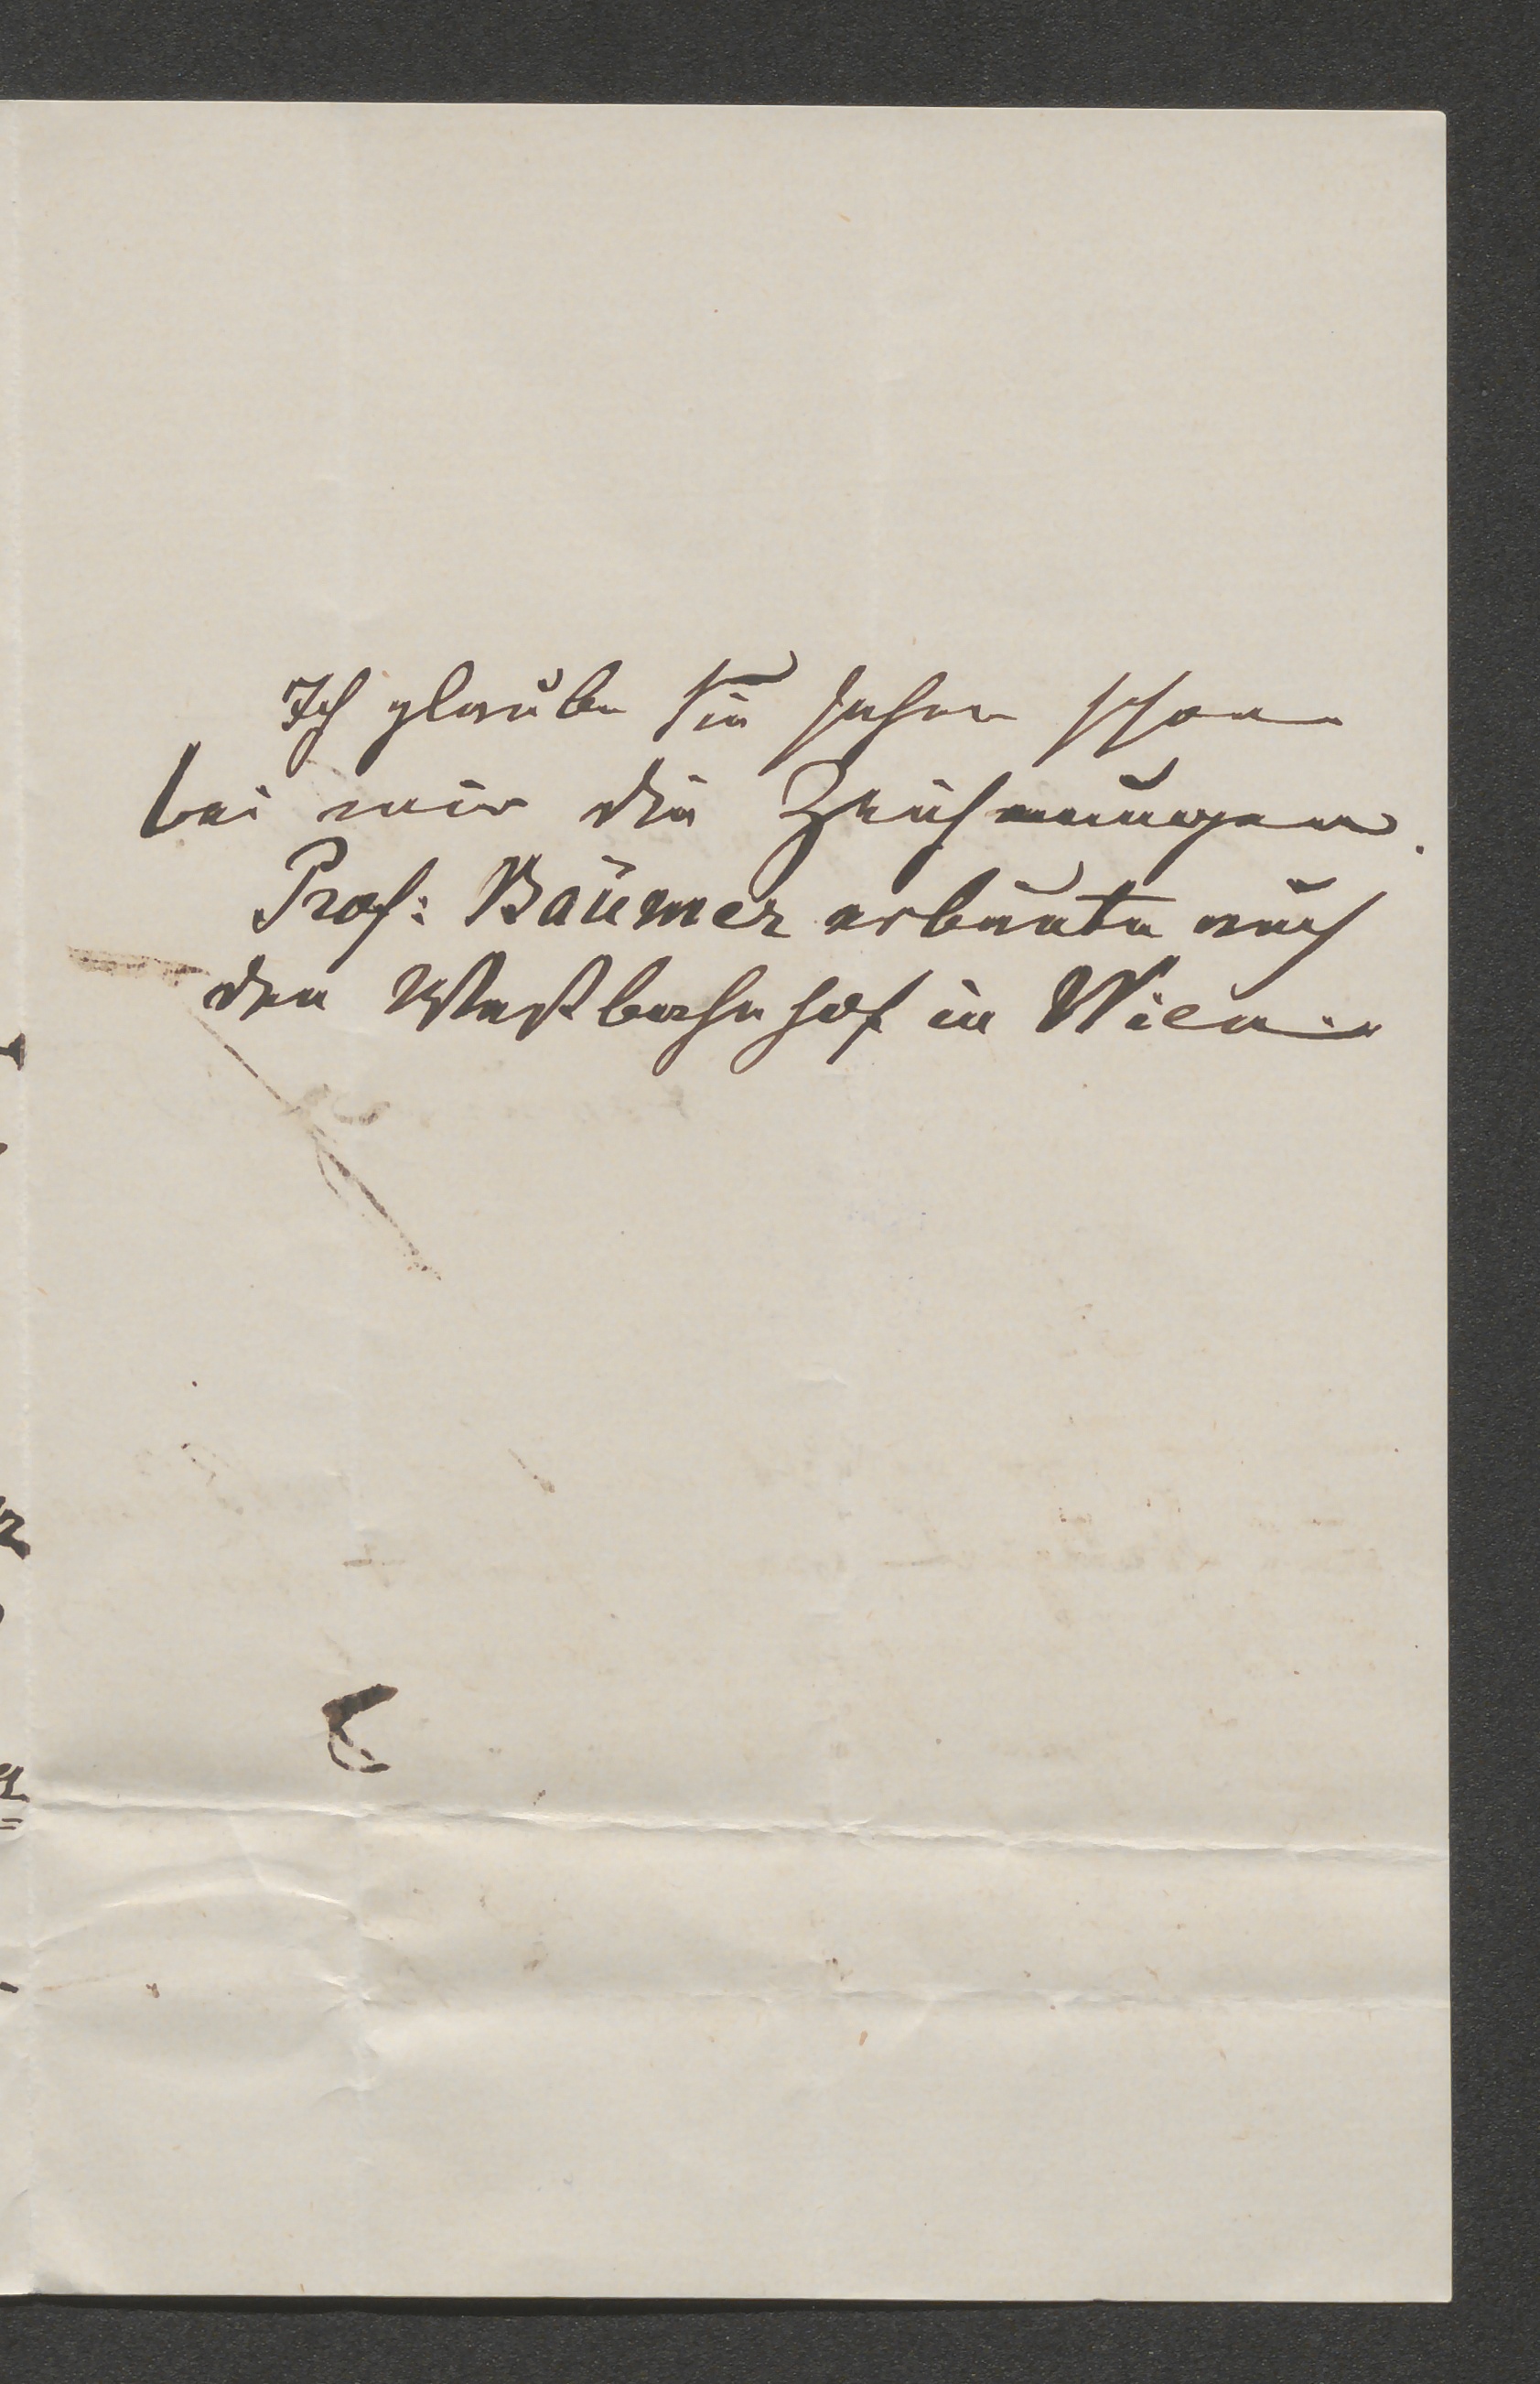 Ich glaube Sie sahen schon
bei mir die Zeichnungen.
Prof: Bäumer erbaute auch
den Westbahnhof in Wien.